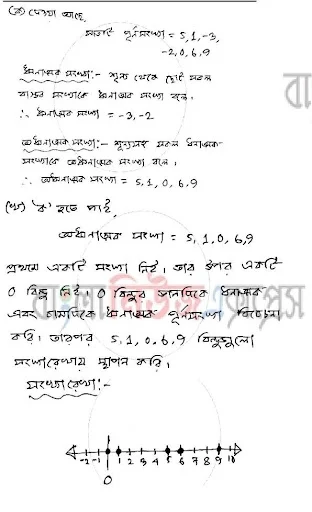 (ক) দেওয়া আছে,
সাতটি পূর্ণসংখ্যা = 5, 1, -3,
-2, 0, 6, 9
ঋনাত্মক সংখ্যা:- শূন্য থেকে ছোট সকল
বাস্তব সংখ্যাকে ঋনাত্মক সংখ্যা বলে।
∴ ঋনাত্মক সংখ্যা = -3, -2
অঋনাত্মক সংখ্যা:- শূন্যসহ সকল ধনাত্মক
সংখ্যাকে অঋনাত্মক সংখ্যা বলে।
∴ অঋনাত্মক সংখ্যা = 5, 1, 0, 6, 9
(খ) 'ক' হতে পাই,
অঋনাত্মক সংখ্যা = 5, 1, 0, 6, 9
প্রথমে একটি সংখ্যা নিই। তার উপর একটি
0 বিন্দু নিই। 0 বিন্দুর ডানদিকে ধনাত্মক
এবং বামদিকে ঋনাত্মক পূর্ণসংখ্যা বিবেচনা
করি। তারপর 5, 1, 0, 6, 9 বিন্দুগুলো
সংখ্যারেখায় স্থাপন করি।
সংখ্যারেখা:-
-2 -1 0 1 2 3 4 5 6 7 8 9 10
0